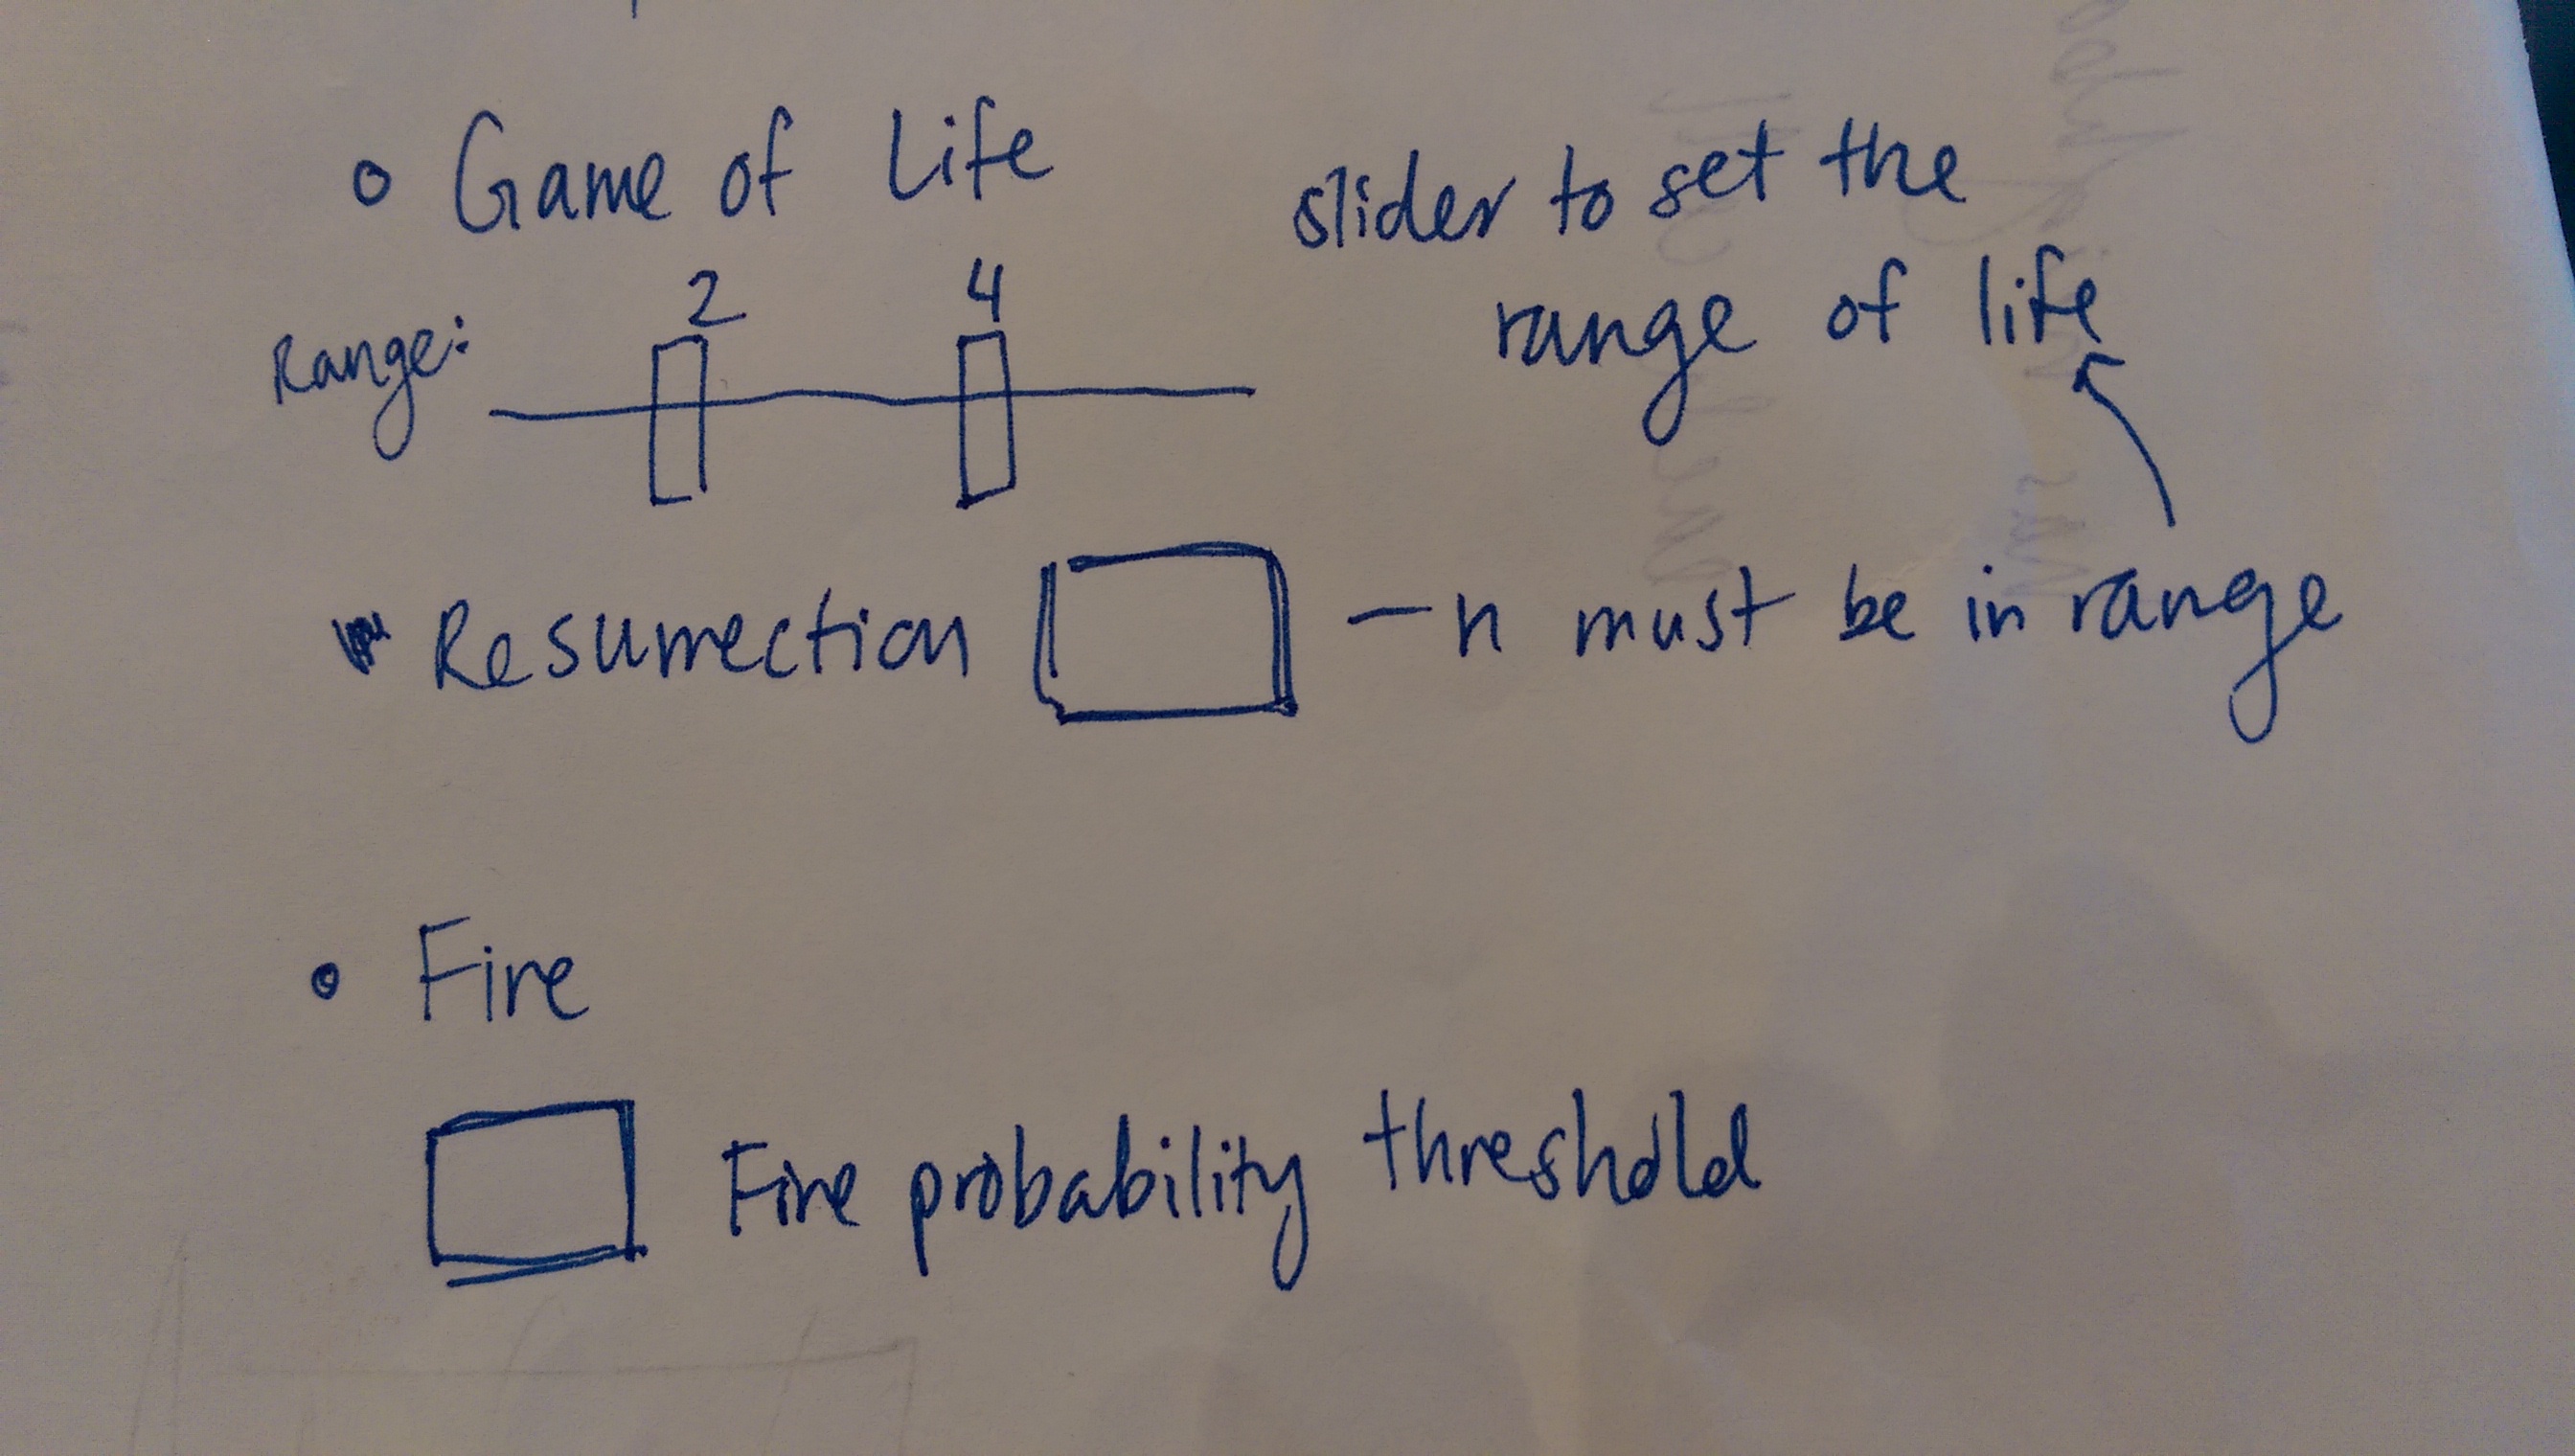 Game of Life
slider to set the
range of life
2 4
Range:
Resurrection — n must be in range
Fire
Fire probability threshold